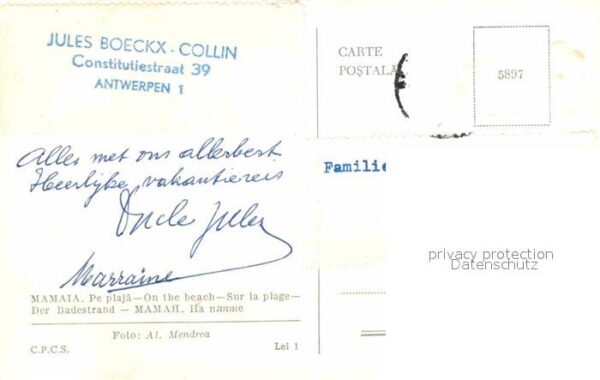 JULES BOECKX - COLLIN
Constitutiestraat 39
ANTWERPEN 1
CARTE
POȘTALĂ
5897
Alles met ons allerbest
Heerlijke vakantiereis
Familie
Oncle Jules
Marraine
privacy protection
Datenschutz
MAMAIA. Pe plajă—On the beach—Sur la plage—
Der Badestrand — МАМАЯ. На пляже
Foto: Al. Mendrea
C.P.C.S.
Lei 1